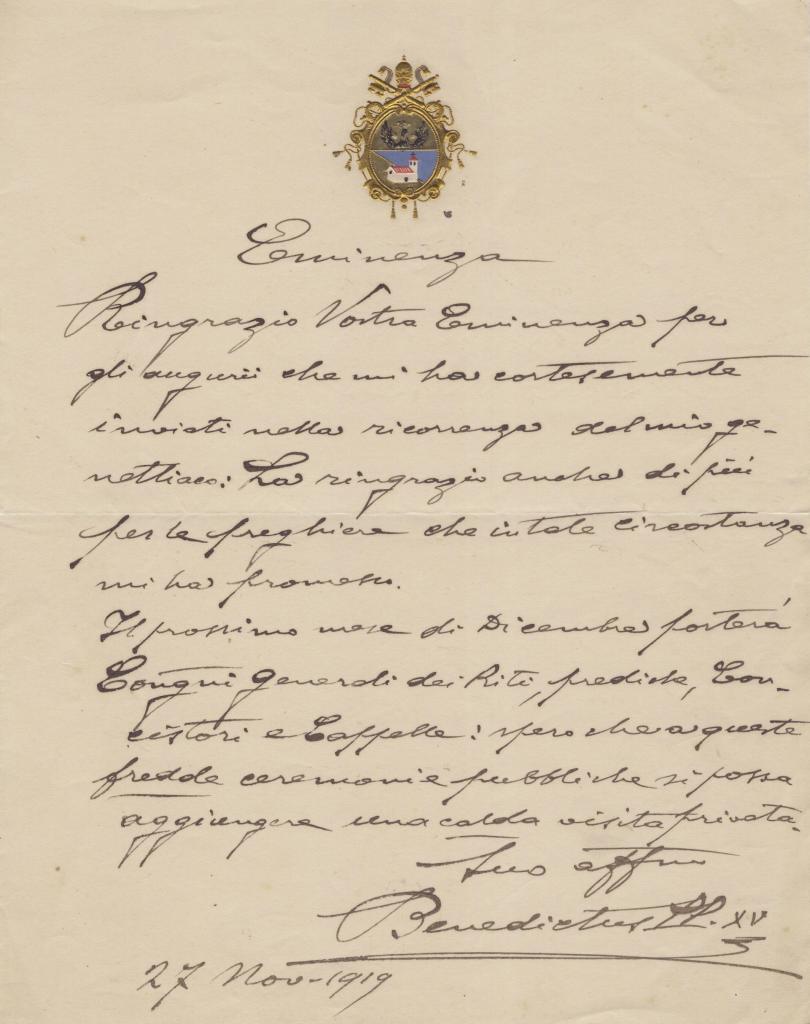 Eminenza
Ringrazio Vostra Eminenza per
gli augurii che mi ha cortesemente
inviati nella ricorrenza del mio ge-
netliaco: La ringrazio anche di più
per le preghiere che in tale circostanza
mi ha promesso.
Il prossimo mese di Dicembre porterà
Congni Generali dei Riti, prediche, Con-
cistori e Cappelle: spero che a queste
fredde ceremonie pubbliche si possa
aggiungere una calda visita privata.
Suo affmo
Benedictus PP. XV
27 Nov-1919